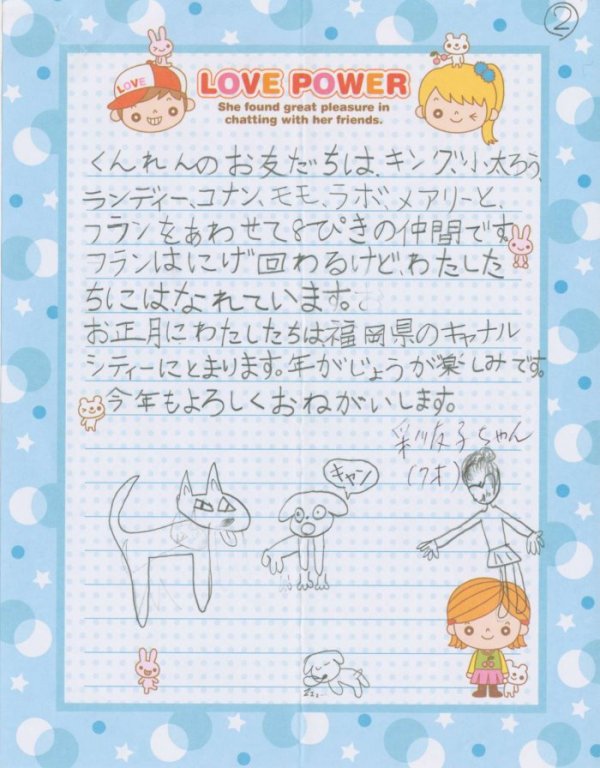 ②
LOVE
LOVE POWER
She found great pleasure in
chatting with her friends.
くんれんのお友だちは、キング、小太ろう、
ランディー、コナン、モモ、ラボ、メアリーと、
フランをあわせて8ぴきの仲間です。
フランはにげ回わるけど、わたした
ちには、なれています。
お正月にわたしたちは福岡県のキャナル
シティーにとまります。年がじょうが楽しみです。
今年もよろしくおねがいします。
友子ちゃん
(7才)
キャン
zzz